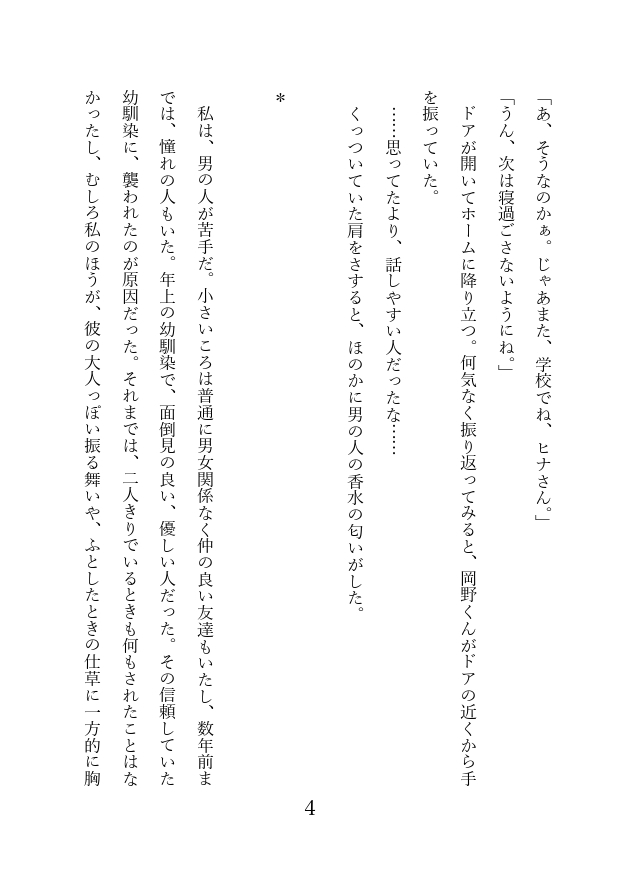 「あ、そうなのかぁ。じゃあまた、学校でね、ヒナさん。」
「うん、次は寝過ごさないようにね。」
　ドアが開いてホームに降り立つ。何気なく振り返ってみると、岡野くんがドアの近くから手
を振っていた。
　……思ってたより、話しやすい人だったな……
　くっついていた肩をさすると、ほのかに男の人の香水の匂いがした。
*
　私は、男の人が苦手だ。小さいころは普通に男女関係なく仲の良い友達もいたし、数年前ま
では、憧れの人もいた。年上の幼馴染で、面倒見の良い、優しい人だった。その信頼していた
幼馴染に、襲われたのが原因だった。それまでは、二人きりでいるときも何もされたことはな
かったし、むしろ私のほうが、彼の大人っぽい振る舞いや、ふとしたときの仕草に一方的に胸
4